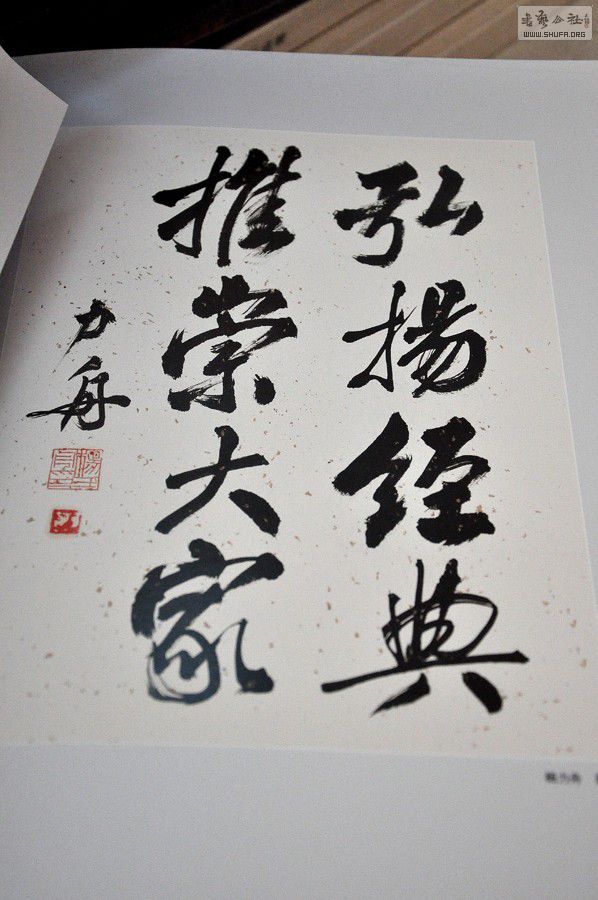 弘揚經典
推崇大家
力舟
书艺公社
WWW.SHUFA.ORG